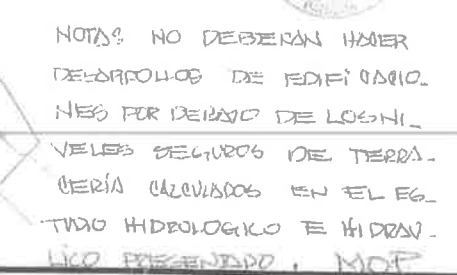 NOTAS NO DEBERAN HACER
DESARROLLOS DE EDIFICACIO-
NES POR DEBAJO DE LOS NI-
VELES SEGUROS DE TERRA-
CERÍA CALCULADOS EN EL ES-
TUDIO HIDROLOGICO E HIDRAU-
LICO PRESENTADO. MOP